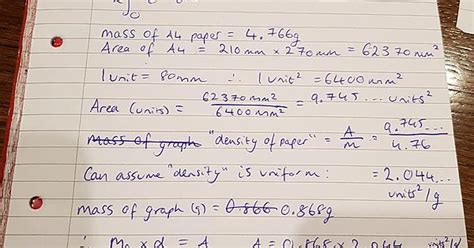 0
mass of A4 paper = 4.766g
Area of A4 = 210mm × 270mm = 62370mm²
1unit = 80mm ∴ 1unit² = 6400mm²
Area (units) = 62370mm² / 6400mm² = 9.745... units²
Mass of graph "density of paper" = A/m = 9.745.../4.76
Can assume "density" is uniform: = 2.044... units²/g
mass of graph (g) = 0.866 0.868g
× α = A A = 0.868 × 2.044